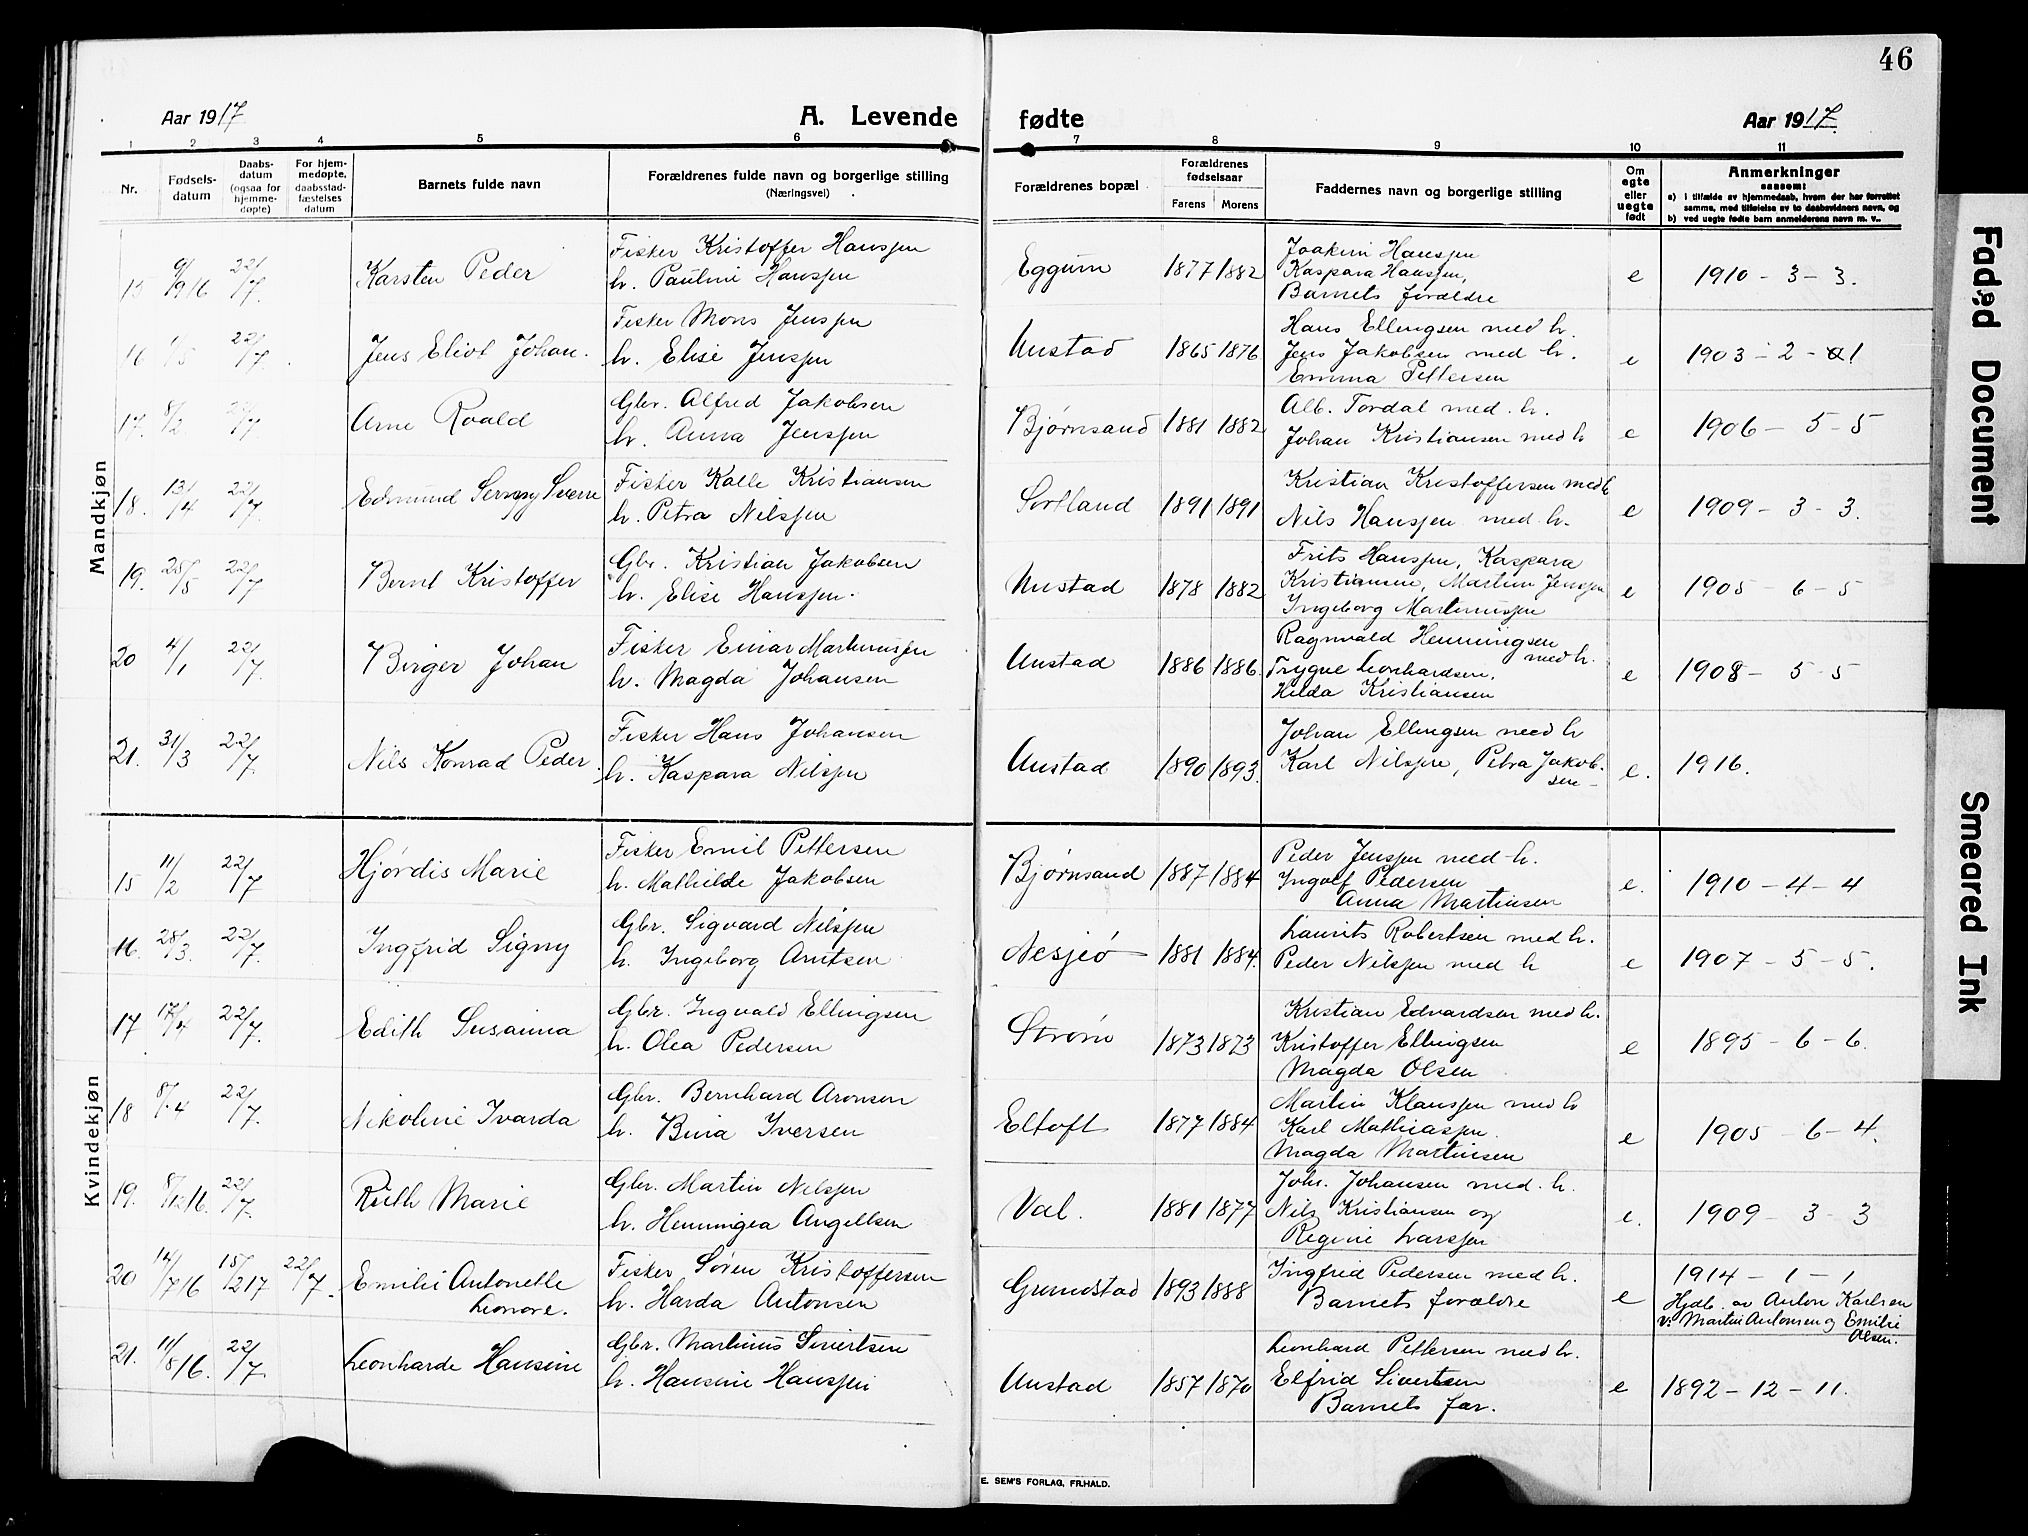 46
Aar 1917
A. Levende fødte
Aar 1917.
1 2 3 4 5 6 7 8 9 10 11
Nr.
Fødsels-
datum
Daabs-
datum
(ogsaa for
hjemme-
døpte)
For hjem-
medøpte,
daabsstad-
fæstelses
datum
Barnets fulde navn
Forældrenes fulde navn og borgerlige stilling
(Næringsvei)
Forældrenes bopæl
Forældrenes
fødselsaar
Farens
Morens
Faddernes navn og borgerlige stilling
Om
egte
eller
uegte
født
Anmerkninger
saasom:
a) i tilfælde av hjemmedaab, hvem der har forrettet
samme, med tilføielse av to daabsvidners navn, og
b) ved uegte fødte barn anmelderens navn m. v..
Mandkjøn
15 6/9 16 22/7. Karsten Peder
Fisker Kristoffer Hanssen
h. Pauline Hanssen
Eggum 1877 1882
Joakim Hanssen
Kaspara Hanssen,
Barnets forældre
e 1910 - 3 - 3.
16 1/5 22/7. Jens Eliot Johan.
Fisker Mons Jenssen
h. Elise Jenssen
Unstad 1865 1876
Hans Ellingsen med h.
Jens Jakobsen med h.
Emma Pettersen
e 1903 - 2 - 1
17. 8/2 22/7. Arne Roald
Gbr. Alfred Jakobsen
h. Anna Jenssen
Bjørnsand 1881 1882
Alb. Tordal med h.
Johan Kristiansen med h
e 1906 - 5 - 5
18. 13/4 22/7. Edmund Sverre
Fisker Kalle Kristiansen
h. Petra Nilssen
Sortland 1891 1891
Kristian Kristoffersen med h
Nils Hanssen med h.
e 1909 - 3 - 3.
19. 25/5 22/7 Bernt Kristoffer
Gbr. Kristian Jakobsen
h. Elise Hanssen.
Unstad 1878 1882
Frits Hanssen, Kaspara
Kristiansen, Martin Jenssen
Ingeborg Martinussen
e 1905 - 6 - 5
20 4/1 22/7. Birger Johan
Fisker Einar Martinussen
h. Magda Johansen
Unstad 1886 1886.
Ragnvald Henningsen
med h.
Trygve Leonhardsen,
Hilda Kristiansen
e 1908 - 5 - 5
21. 31/3 22/7. Nils Konrad Peder.
Fisker Hans Johansen
h. Kaspara Nilssen
Unstad 1890 1893.
Johan Ellingsen med h
Karl Nilssen, Petra Jakob-
sen -
e. 1916.
Kvindekjøn
15 11/2 22/7 Hjørdis Marie
Fisker Emil Pettersen
h. Mathilde Jakobsen
Bjørnsand 1887 1884
Peder Jenssen med h.
Ingolf Pedersen
Anna Martinsen
e. 1910 - 4 - 4
16. 28/3. 22/7. Ingfrid Signy
Gbr. Sigvard Nilssen
h. Ingeborg Arntsen
Nesjeø 1881 1884.
Laurits Robertsen med h.
Peder Nilssen med h
e 1907 - 5 - 5.
17 17/4 22/7. Edith Susanna
Gbr. Ingvald Ellingsen
h. Olea Pedersen
Strøm 1873 1873
Kristian Edvardsen med h.
Kristoffer Ellingsen
Magda Olsen
e 1895 - 6 - 6.
18 8/4 22/7. Nikoline Ivarda
Gbr. Bernhard Aronsen
h. Bina Iversen
Eltoft 1877 1884
Martin Klaussen med h
Karl Mathiassen.
Magda Martinsen
e 1905 - 6 - 4.
19. 8/12 16. 22/7. Ruth Marie
Gbr. Martin Nilssen
h. Henningea Angellsen
Val. 1881 1877
Johs. Johansen med h.
Nils Kristiansen og
Regine Larssen
e. 1909 - 3 - 3
20 14/7 16 15/2 17 22/7. Emilie Antonette
Leonore.
Fisker Søren Kristoffersen
h. Harda Antonsen
Grundstad 1893 1888
Ingfrid Pedersen med h.
Barnets forældre
e 1914 - 1 - 1
Hjdb. av Anton Karlsen
v: Martin Antonsen og Emilie
Olsen.
21. 11/8 16. 22/7. Leonharde Hansine
Gbr. Martinus Sivertsen
h. Hansine Hanssen
Unstad 1857 1870
Leonhard Pettersen med h.
Elfrid Sivertsen
Barnets far.
e 1892 - 12 - 11.
E. SEM'S FORLAG, FR.HALD.
Faded Document
Smeared Ink